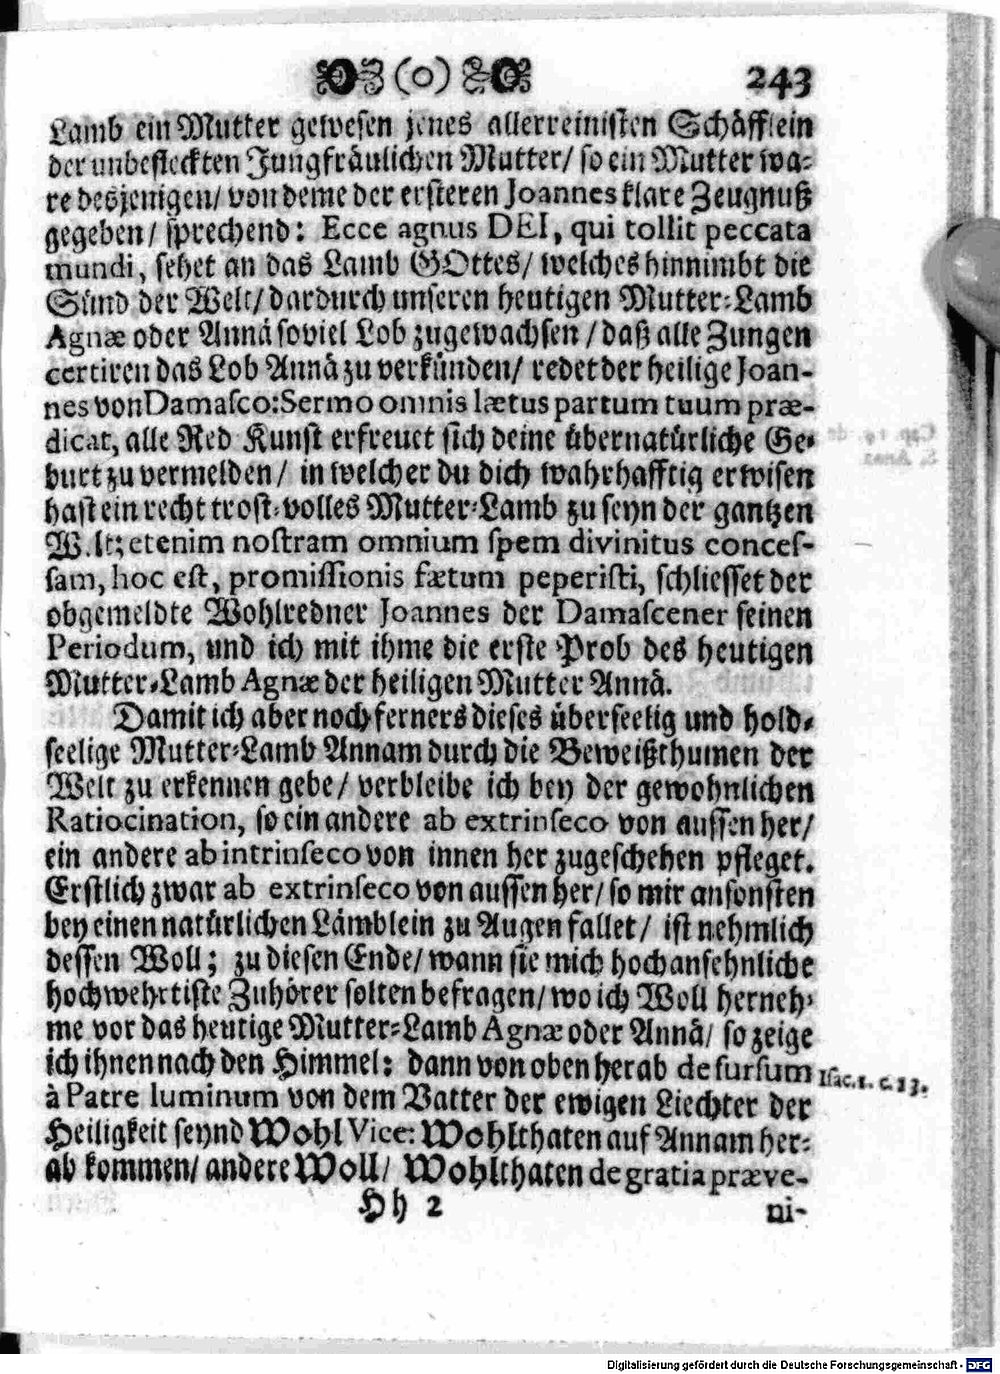 (o) 243
Lamb ein Mutter gewesen jenes allerreinisten Schäfflein
der unbefleckten Jungfräulichen Mutter/ so ein Mutter wa-
re desjenigen/ von deme der ersteren Joannes klare Zeugnuß
gegeben/ sprechend: Ecce agnus DEI, qui tollit peccata
mundi, sehet an das Lamb GOttes/ welches hinnimbt die
Sünd der Welt/ dardurch unseren heutigen Mutter-Lamb
Agnæ oder Annä soviel Lob zugewachsen/ daß alle Zungen
certiren das Lob Annä zu verkünden/ redet der heilige Joan-
nes von Damasco: Sermo omnis lætus partum tuum præ-
dicat, alle Red Kunst erfreuet sich deine übernatürliche Ge-
burt zu vermelden/ in welcher du dich wahrhafftig erwisen
hast ein recht trost-volles Mutter-Lamb zu seyn der gantzen
W.lt; etenim nostram omnium spem divinitus conces-
sam, hoc est, promissionis fætum peperisti, schliesset der
obgemeldte Wohlredner Joannes der Damascener seinen
Periodum, und ich mit ihme die erste Prob des heutigen
Mutter-Lamb Agnæ der heiligen Mutter Annä.
Damit ich aber noch ferners dieses überseelig und hold-
seelige Mutter-Lamb Annam durch die Beweißthumen der
Welt zu erkennen gebe/ verbleibe ich bey der gewohnlichen
Ratiocination, so ein andere ab extrinseco von aussen her/
ein andere ab intrinseco von innen her zugeschehen pfleget.
Erstlich zwar ab extrinseco von aussen her/ so mir ansonsten
bey einen natürlichen Lämblein zu Augen fallet/ ist nehmlich
dessen Woll; zu diesen Ende/ wann sie mich hochansehnliche
hochwehrtiste Zuhörer solten befragen/ wo ich Woll herneh-
me vor das heutige Mutter-Lamb Agnæ oder Annä/ so zeige
ich ihnen nach den Himmel: dann von oben herab desursum Isac. 1. c. 13.
à Patre luminum von dem Vatter der ewigen Liechter der
Heiligkeit seynd Wohl Vice: Wohlthaten auf Annam her-
ab kommen/ andere Woll/ Wohlthaten de gratia præve-
Hh 2 ni-
Digitalisierung gefördert durch die Deutsche Forschungsgemeinschaft - DFG